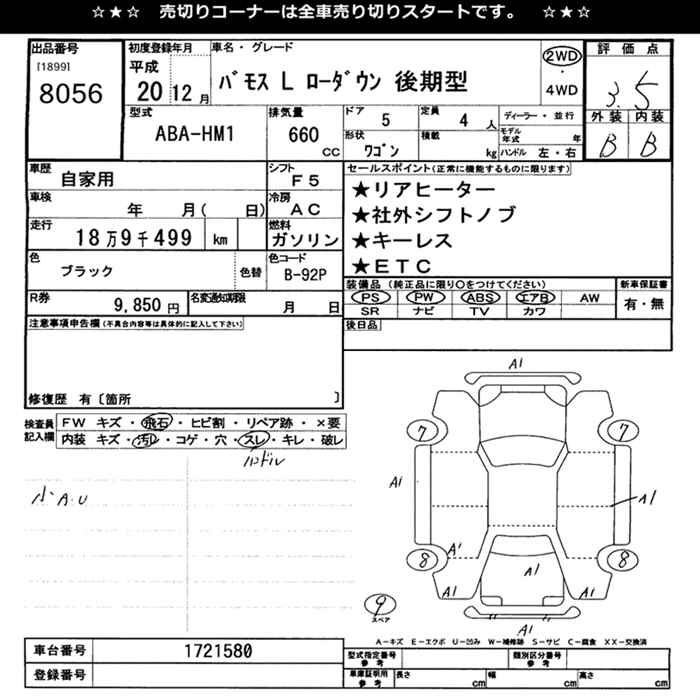 ☆★☆ 売切りコーナーは全車売り切りスタートです。 ☆★☆
出品番号
[1899]
8056
初度登録年月
平成
20 12 月
車名・グレード
バモス L ローダウン 後期型
2WD
・
4WD
評価点
3.5
外装 内装
B B
型式
ABA-HM1
排気量
660
CC
ドア
5
定員
4 人
ディーラー・並行
モデル年式 年
形状
ワゴン
積載
kg
ハンドル 左・右
車歴
自家用
シフト
F5
車検
年 月( 日)
冷房
AC
走行
18万9千499 km
燃料
ガソリン
色
ブラック
色替
色コード
B-92P
R券
9,850 円
名変通知期限
月 日
セールスポイント(正常に機能するものに限ります)
★リアヒーター
★社外シフトノブ
★キーレス
★ETC
装備品 (純正品に限り○をつけてください)
PS PW ABS エアB AW
SR ナビ TV カワ
新車保証書
有・無
後日品
注意事項申告欄 (不具合内容等は具体的に記入して下さい)
修復歴 有〔箇所 〕
検査員記入欄
FW キズ・飛石・ヒビ割・リペア跡・×要
内装 キズ・汚レ・コゲ・穴・スレ・キレ・破レ
ハンドル
小A.U
A1
7 7
A1 A1
A1
8 8
A1
A1 A1
9
スペア
A1
A-キズ E-エクボ U-凹み W-補修跡 S-サビ C-腐食 XX-交換済
車台番号 1721580
登録番号
型式指定番号
参考
類別区分番号
参考
車庫証明用
参考
長さ cm 幅 cm 高さ cm